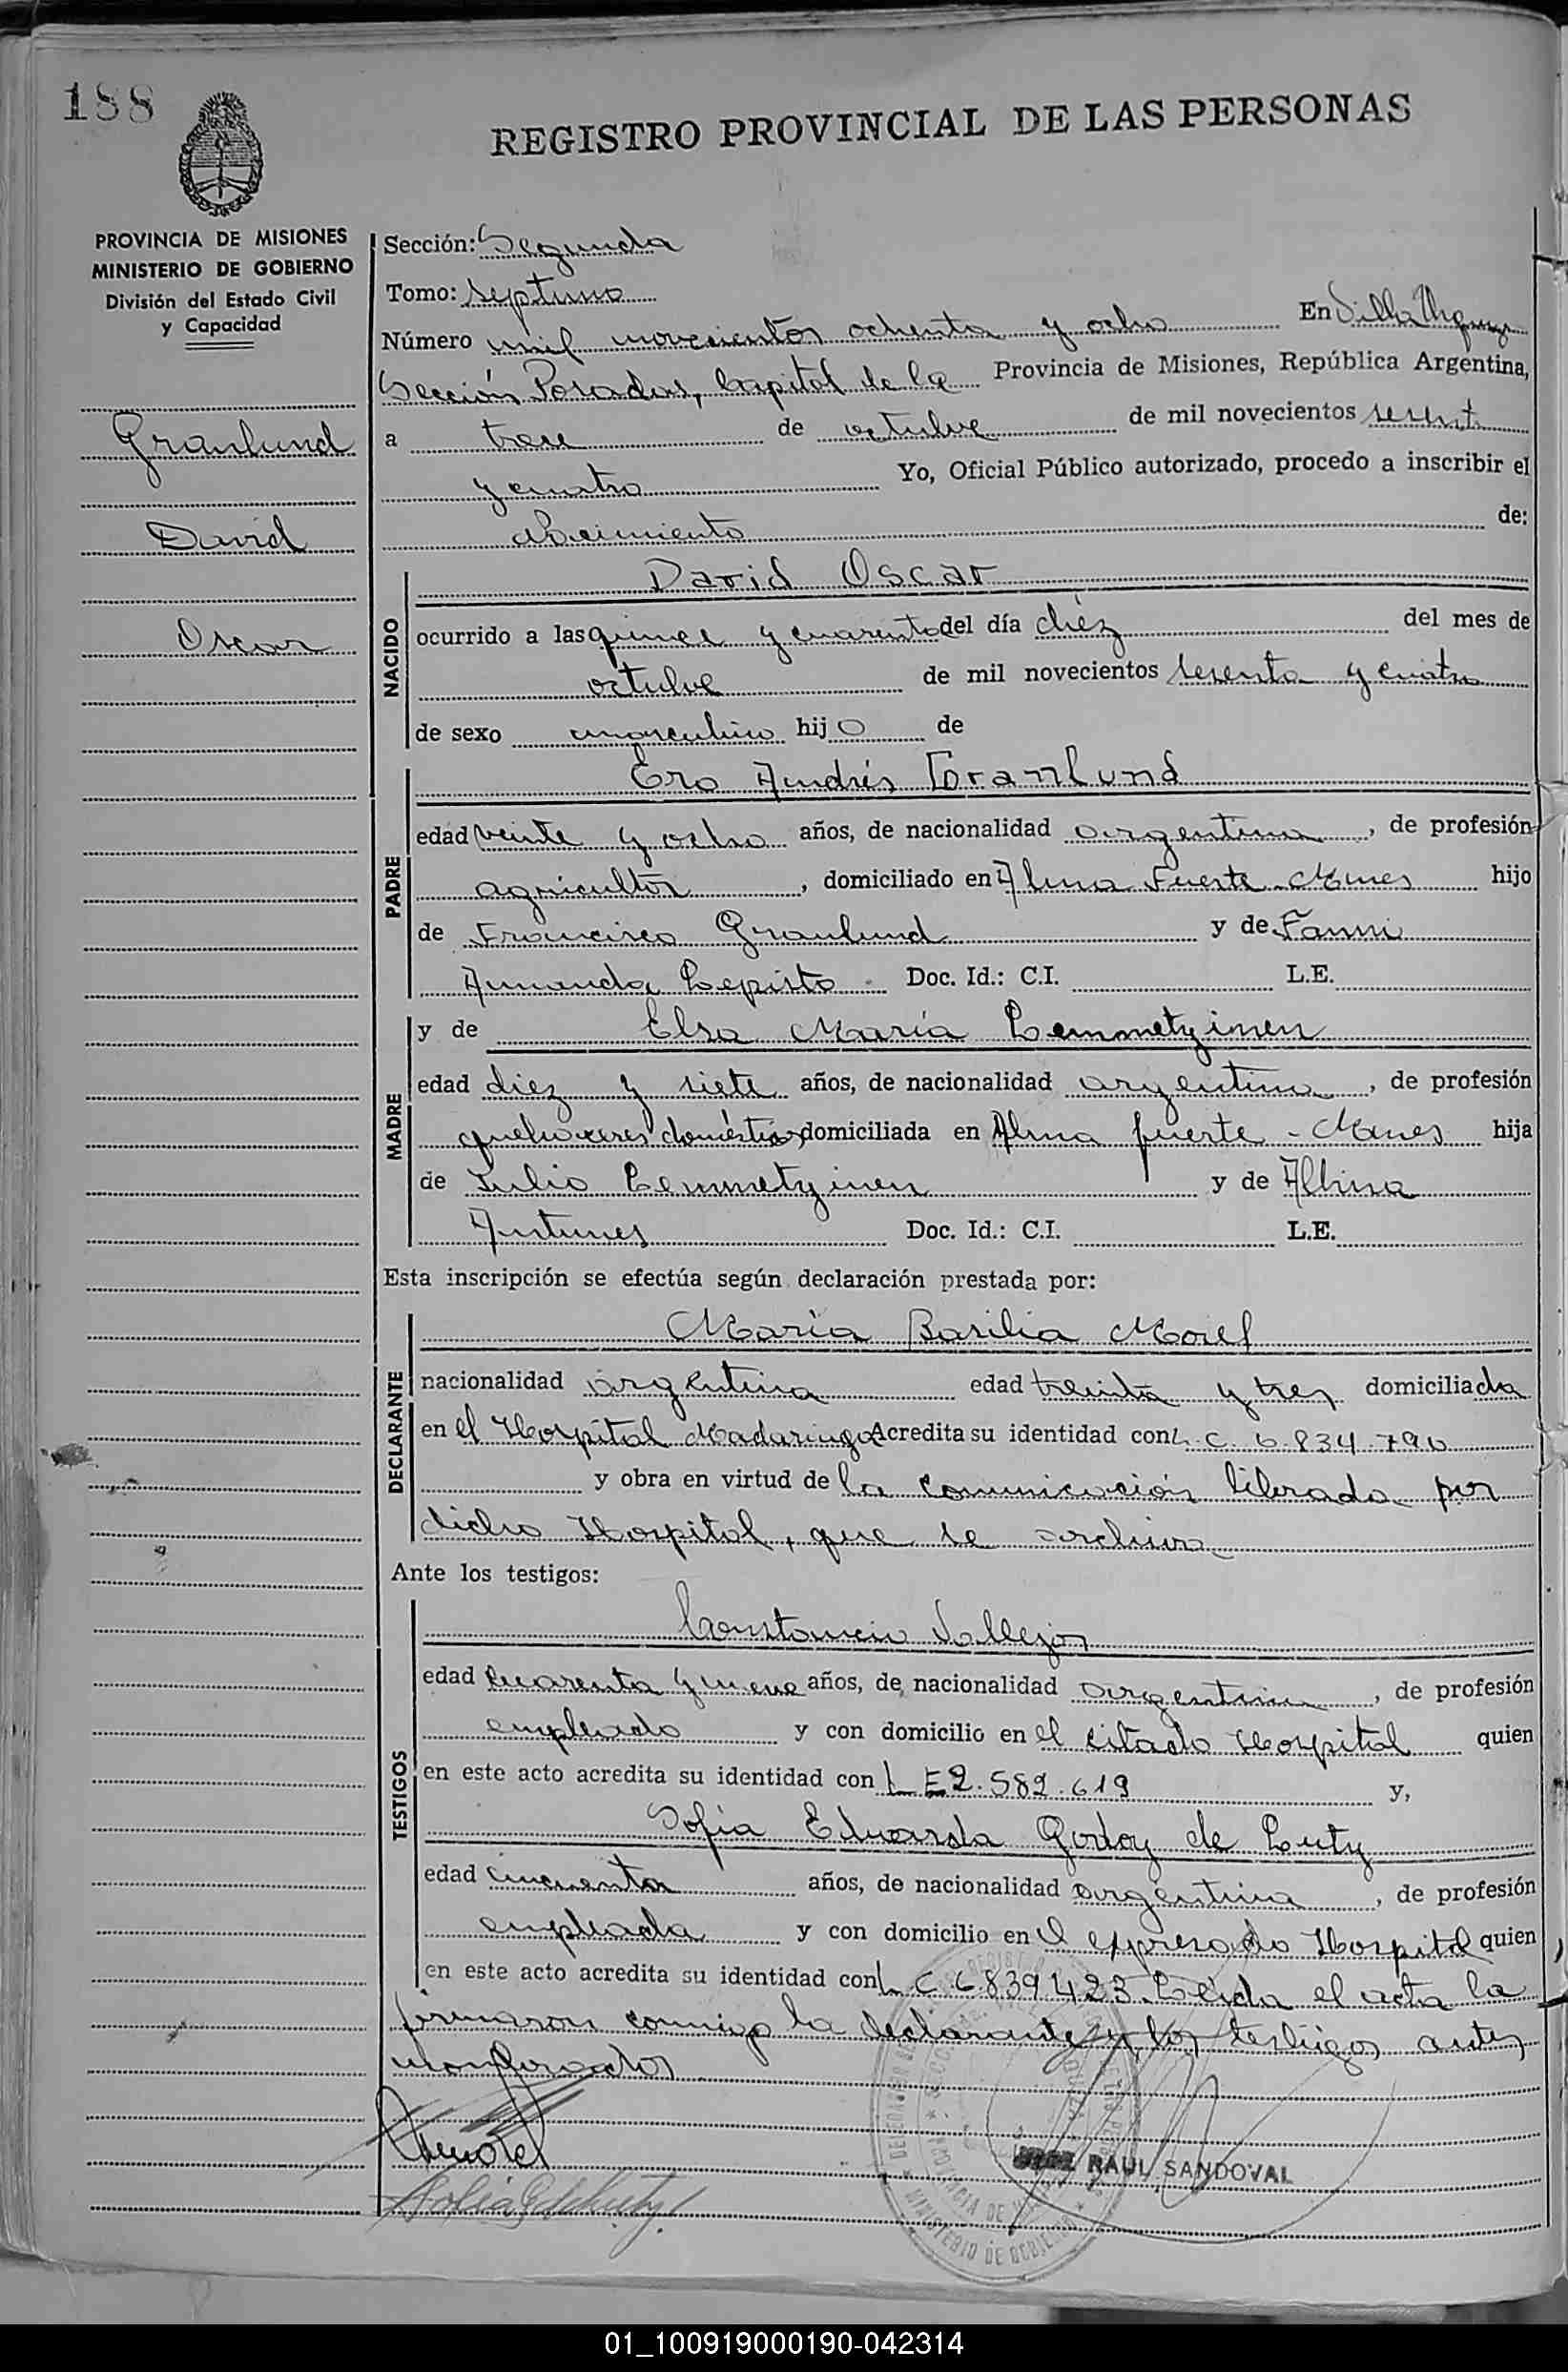 188
REGISTRO PROVINCIAL DE LAS PERSONAS
PROVINCIA DE MISIONES
MINISTERIO DE GOBIERNO
División del Estado Civil
y Capacidad
Granlund
David
Oscar
Sección: Segunda
Tomo: Septimo
Número mil novecientos ochenta y ocho En Villa Urquiza
Sección Posadas, Capital de la Provincia de Misiones, República Argentina,
a trece de octubre de mil novecientos sesenta
y cuatro Yo, Oficial Público autorizado, procedo a inscribir el
Nacimiento de:
NACIDO
David Oscar
ocurrido a las quince y cuarenta del día diéz del mes de
octubre de mil novecientos sesenta y cuatro
de sexo masculino hijo de
PADRE
Ero Andrés Granlund
edad veinte y ocho años, de nacionalidad argentina, de profesión
agricultor, domiciliado en Alma Fuerte Mnes hijo
de Francisco Granlund y de Fanni
Amanda Lepisto - Doc. Id.: C.I. L.E.
MADRE
y de Elsa María Lemmetyinen
edad diez y siete años, de nacionalidad argentina, de profesión
quehaceres domésticos, domiciliada en Alma fuerte - Mnes hija
de Julio Lemmetyinen y de Albina
Antunes Doc. Id.: C.I. L.E.
Esta inscripción se efectúa según declaración prestada por:
DECLARANTE
María Basilia Morel
nacionalidad argentina edad treinta y tres domiciliada
en el Hospital Madariaga Acredita su identidad con L. C. 6.834.790
y obra en virtud de la comunicación librada por
dicho Hospital, que se archiva
Ante los testigos:
TESTIGOS
Constancio Vallejos
edad cuarenta y nueve años, de nacionalidad argentina, de profesión
empleado y con domicilio en el citado Hospital quien
en este acto acredita su identidad con L E 2.582.619 y,
Sofia Eduarda Godoy de Luty
edad cincuenta años, de nacionalidad argentina, de profesión
empleada y con domicilio en el expresado Hospital quien
en este acto acredita su identidad con L C 6.839.423. Leída el acta la
firmaron conmigo la declarante y los testigos antes
nombrados
RAUL SANDOVAL
MINISTERIO DE GOBIERNO
01_100919000190-042314